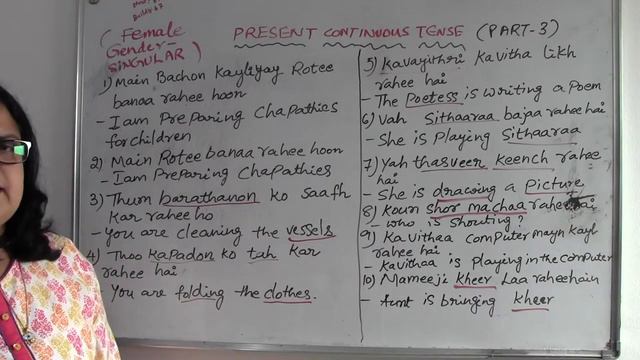 PRESENT CONTINUOUS TENSE (PART-3)
( Female
Gender-
SINGULAR )
1) Main Bachon kayliyay Rotee
banaa rahee hoon
- I am Preparing Chapathies
for children
2) Main Rotee banaa rahee hoon
- I am Preparing Chapathies
3) Thum barathanon ko saafh
kar rahee ho
- You are cleaning the vessels
4) Thoo kapadon ko tah kar
rahee hai
You are folding the clothes.
5) Kavayithri kavitha likh
rahee hai
- The Poetess is writing a Poem
6) Vah Sithaaraa bajaa rahee hai
- She is Playing Sithaaraa
7) Yah thasveer keench rahee
hai
- She is drawing a Picture
8) Koun shor machaa rahee hai
- who is shouting?
9) Kavithaa computer mayn kayl
rahee hai.
- Kavithaa is playing in the computer
10) Mameeji kheer Laa raheehain
- Aunt is bringing kheer